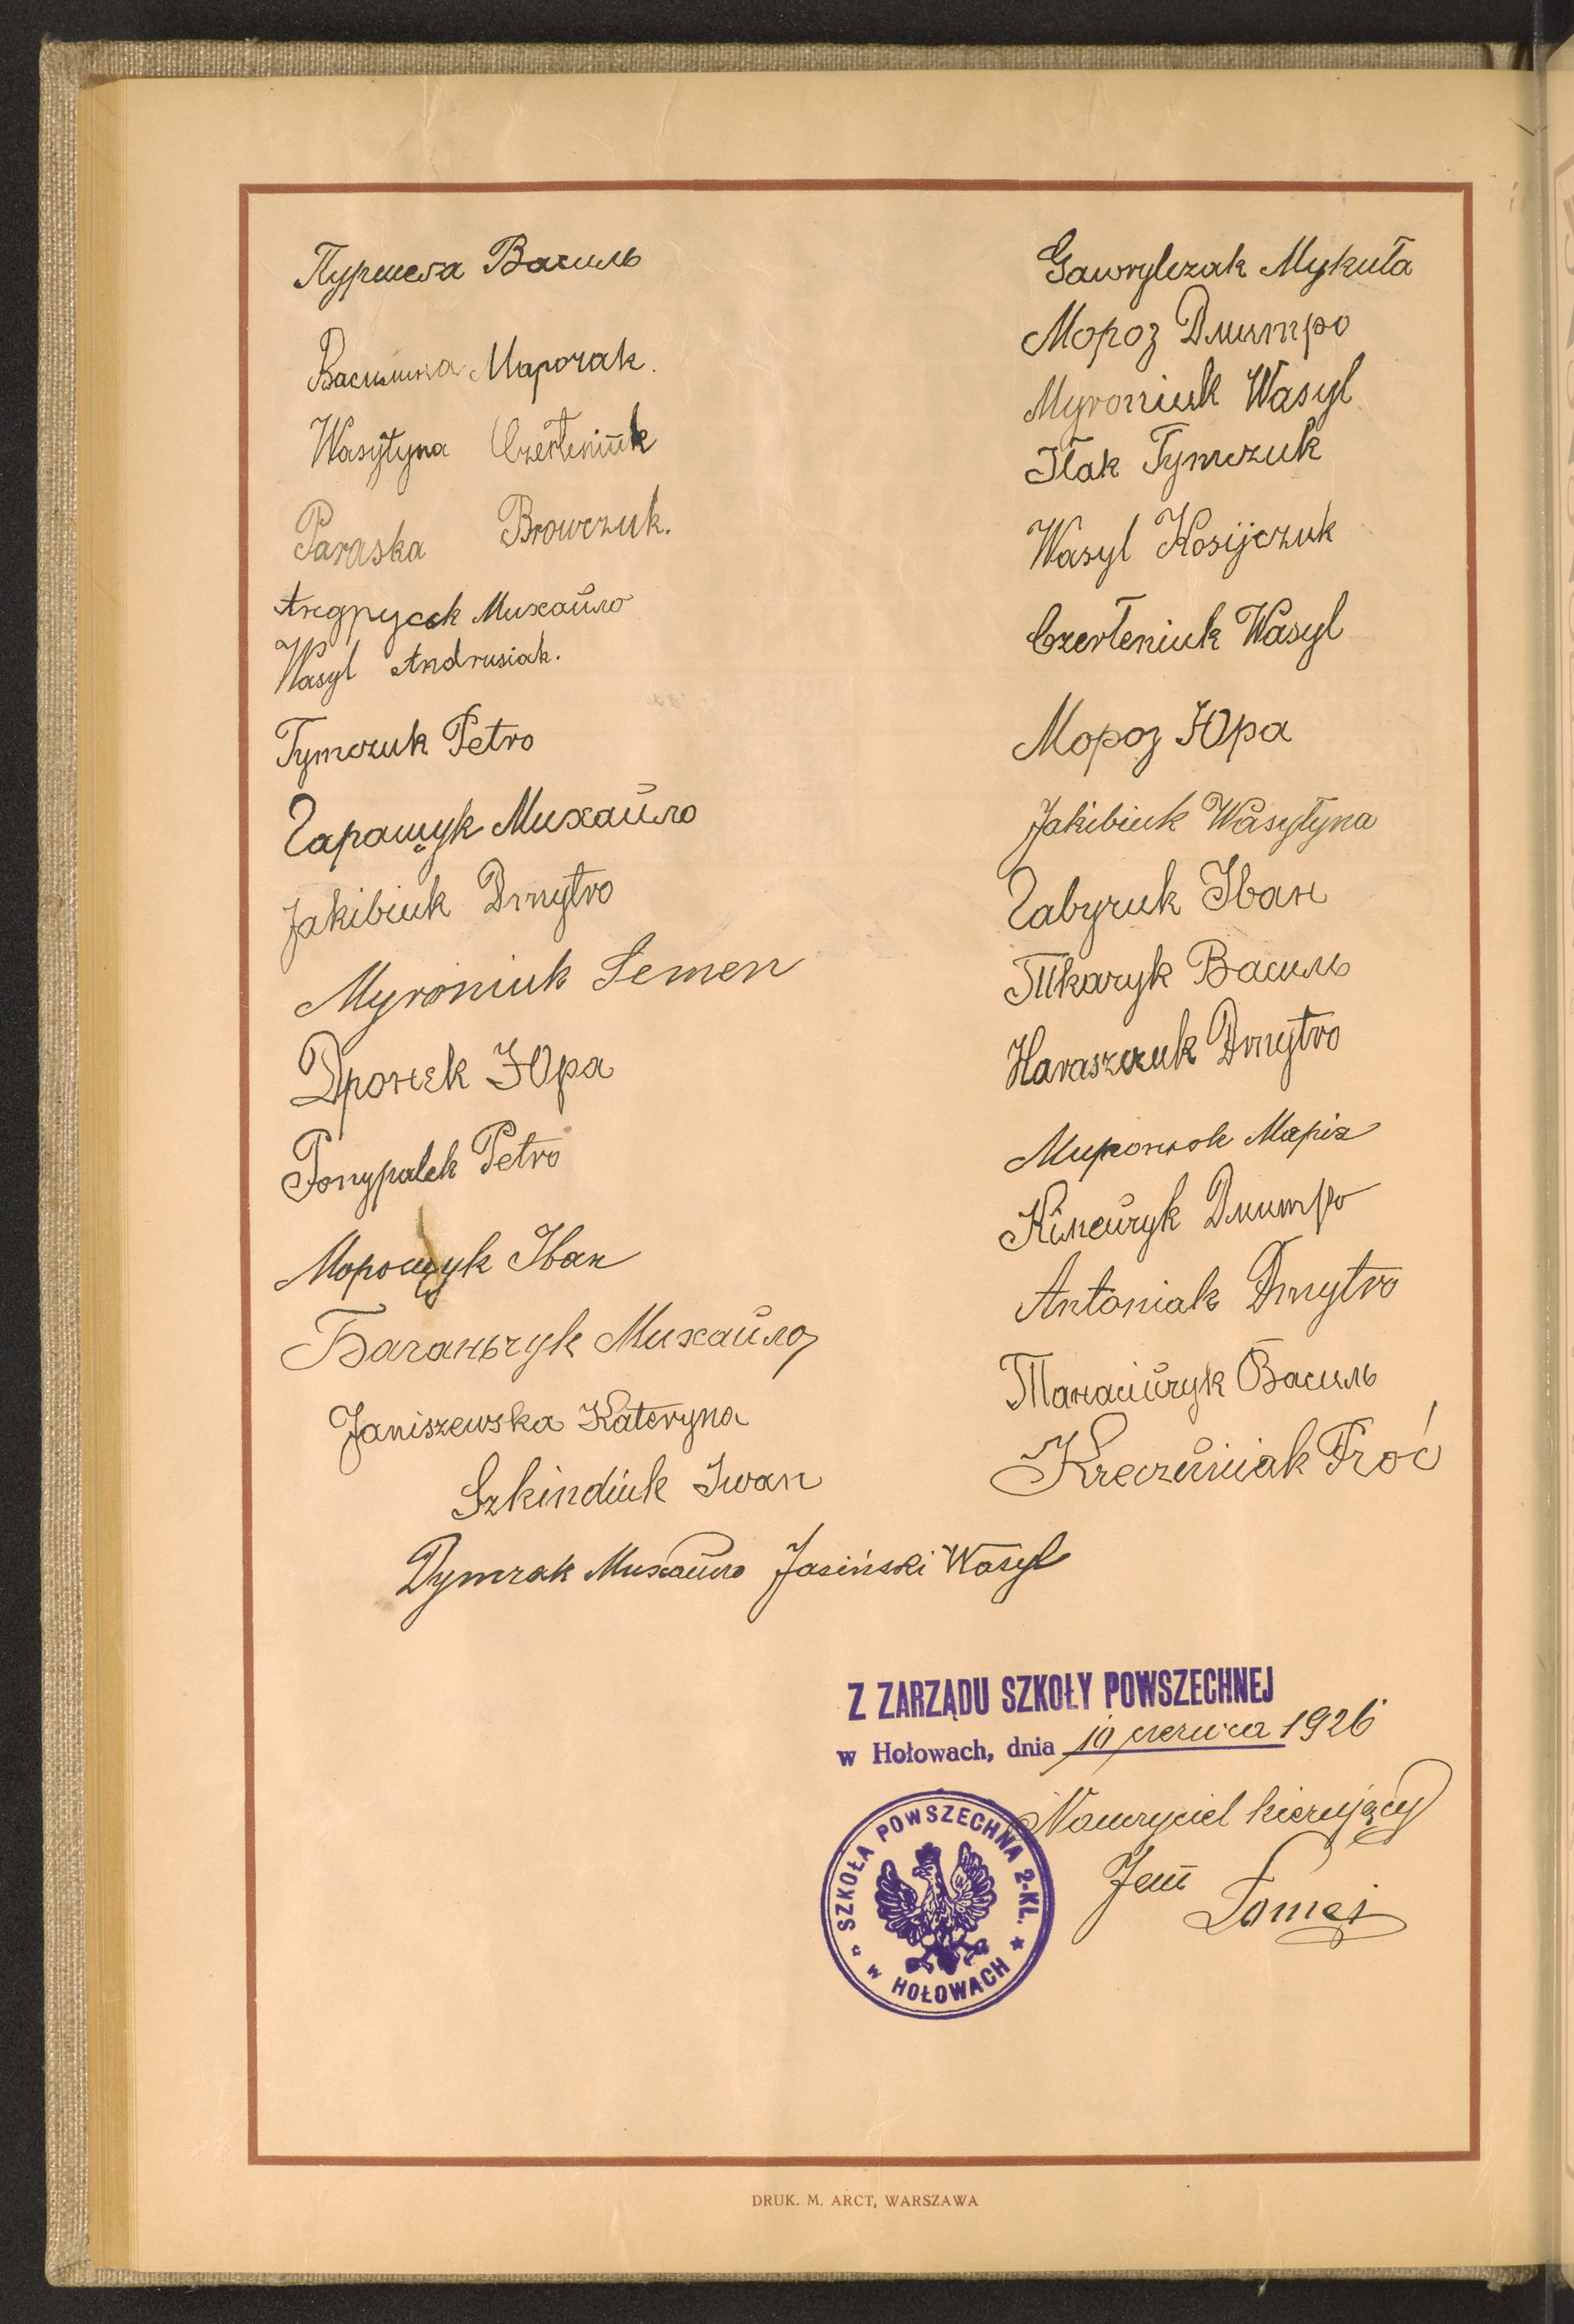 Пуршега Василь
Василина Марочак.
Wasyłyna Czerleniuk
Paraska Browczuk.
Андрусєк Михайло
Wasyl Andrusiak.
Tymczuk Petro
Гаращук Михайло
Jakibiuk Dmytro
Myroniuk Semen
Дронєк Юра
Ponypalek Petro
Морощук Іван
Баганьчук Михайло
Janiszewska Kateryna
Szkindiuk Iwan
Dymczak Михайло Jasiński Wasyl
Gawrylczak Mykuła
Мороз Дмитро
Myroniuk Wasyl
Iłak Tymczuk
Wasyl Kosijczuk
Czerłeniuk Wasyl
Мороз Юра
Jakibiuk Wasyłyna
Габурук Іван
Ткачук Василь
Haraszczuk Dmytro
Миронюк Марія
Кілєйчук Дмитро
Antoniak Dmytro
Танасійчук Василь
Froć
Z ZARZĄDU SZKOŁY POWSZECHNEJ
w Hołowach, dnia 10 czerwca 1926
Nauczyciel kierujący
Jan
SZKOŁA POWSZECHNA 2-KL. w HOŁOWACH
DRUK. M. ARCT, WARSZAWA